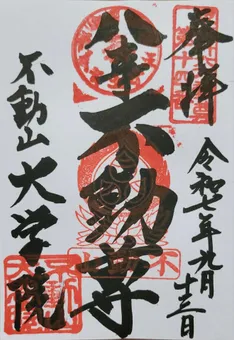 奉拝
令和七年九月十三日
八事不動尊
不動山大学院